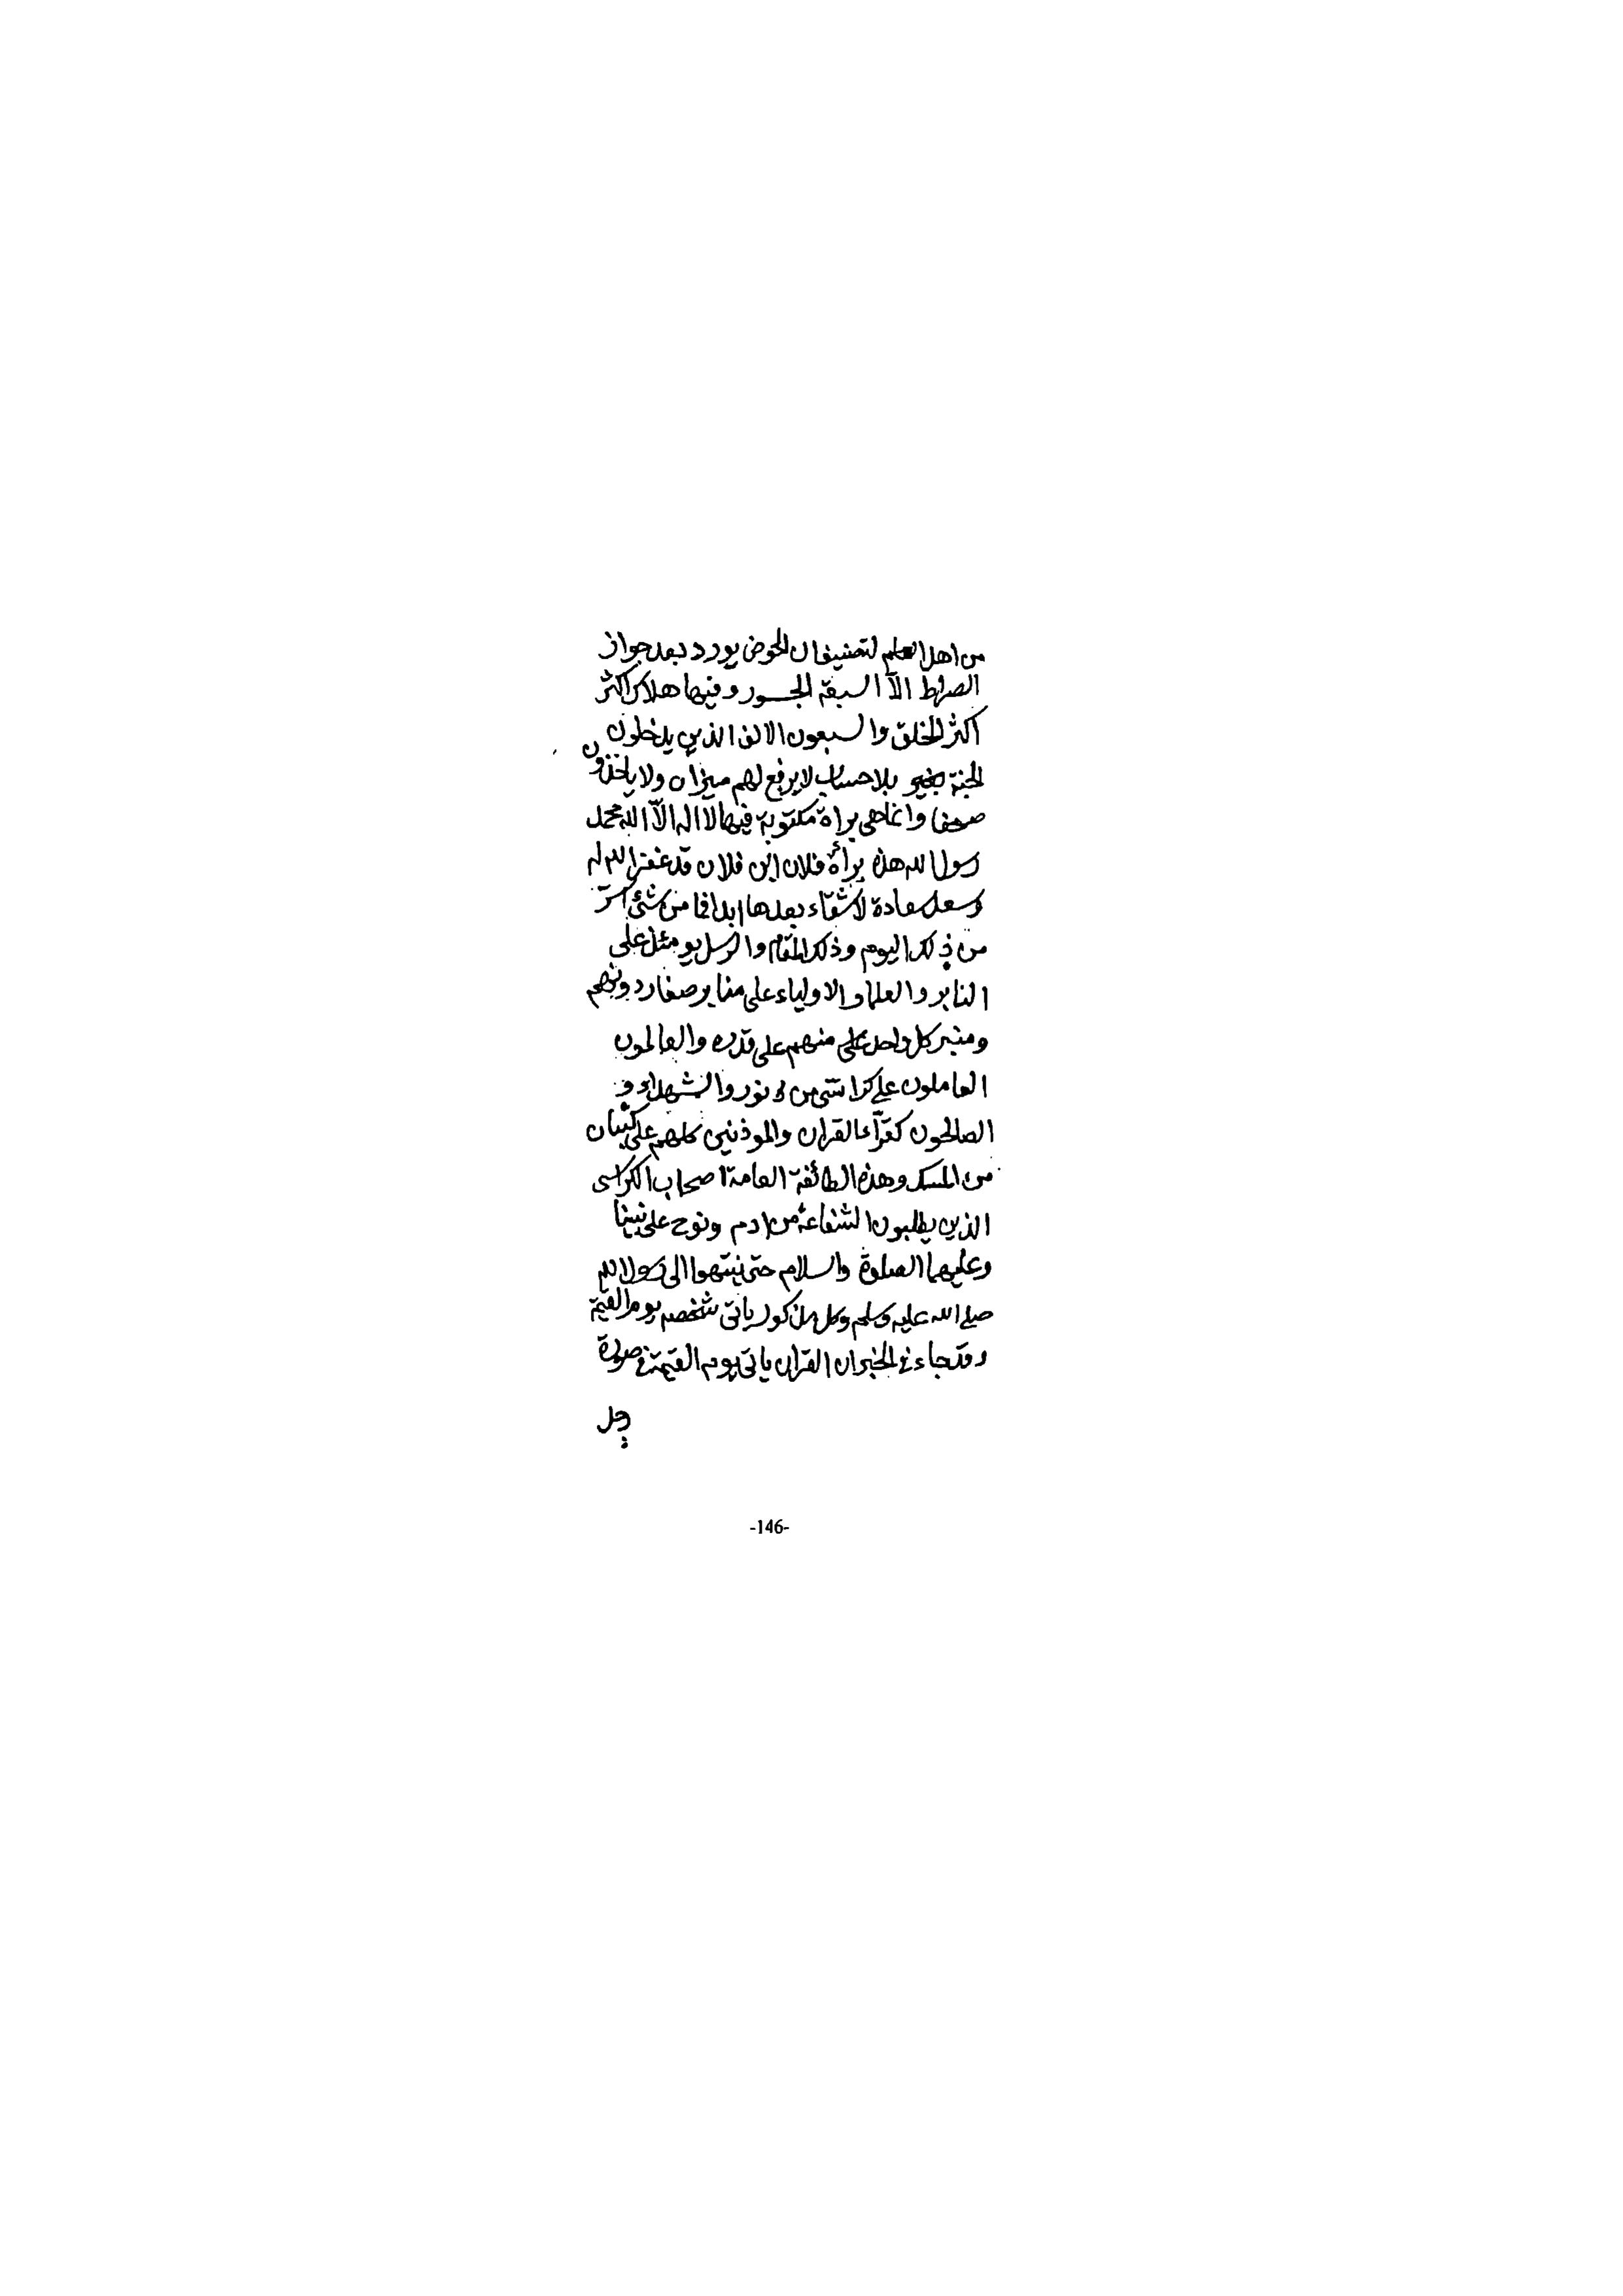 من اهل العلم لتصنيف ان الحوض يورد بعد جواز
الصراط الآ السبقة الجسور وفيها هلاك اكثر
اكثر الخلق والسبعون الالف الذين يدخلون
الجنة بغير بلا حساب لا يرفع لهم ميزان ولا ياخذون
صحفا وانما هى براة مكتوبة فيها لآ اله الآ الله محمد
رسول الله هذه براة فلان ابن فلان قد غفر الله له
وسعد سعادة لا شقاء بعدها ابدا فما من شئ اسر
من ذلك اليوم وذلك المقام والرسل يومئذ على
المنابر والعلماء والاولياء على منابر صغار دونهم
ومنبر كل واحد على منهم على قدره والعالمون
العاملون على كراسى من نور والشهداء و
الصالحون كقرآء القران والموذنين كلهم على كثبان
من المسك وهذه الطائفة العامة اصحاب الكراسى
الذين يطلبون الشفاعة من ادم ونوح على نبينا
وعليهما الصلوة والسلام حتى ينتهوا الى رسول الله
صلى الله عليه وسلم وكل مذكور ياتى شخصه يوم القيمة
وقد جاء فى الخبر ان القران ياتى يوم القيمة فى صورة
رجل
-146-